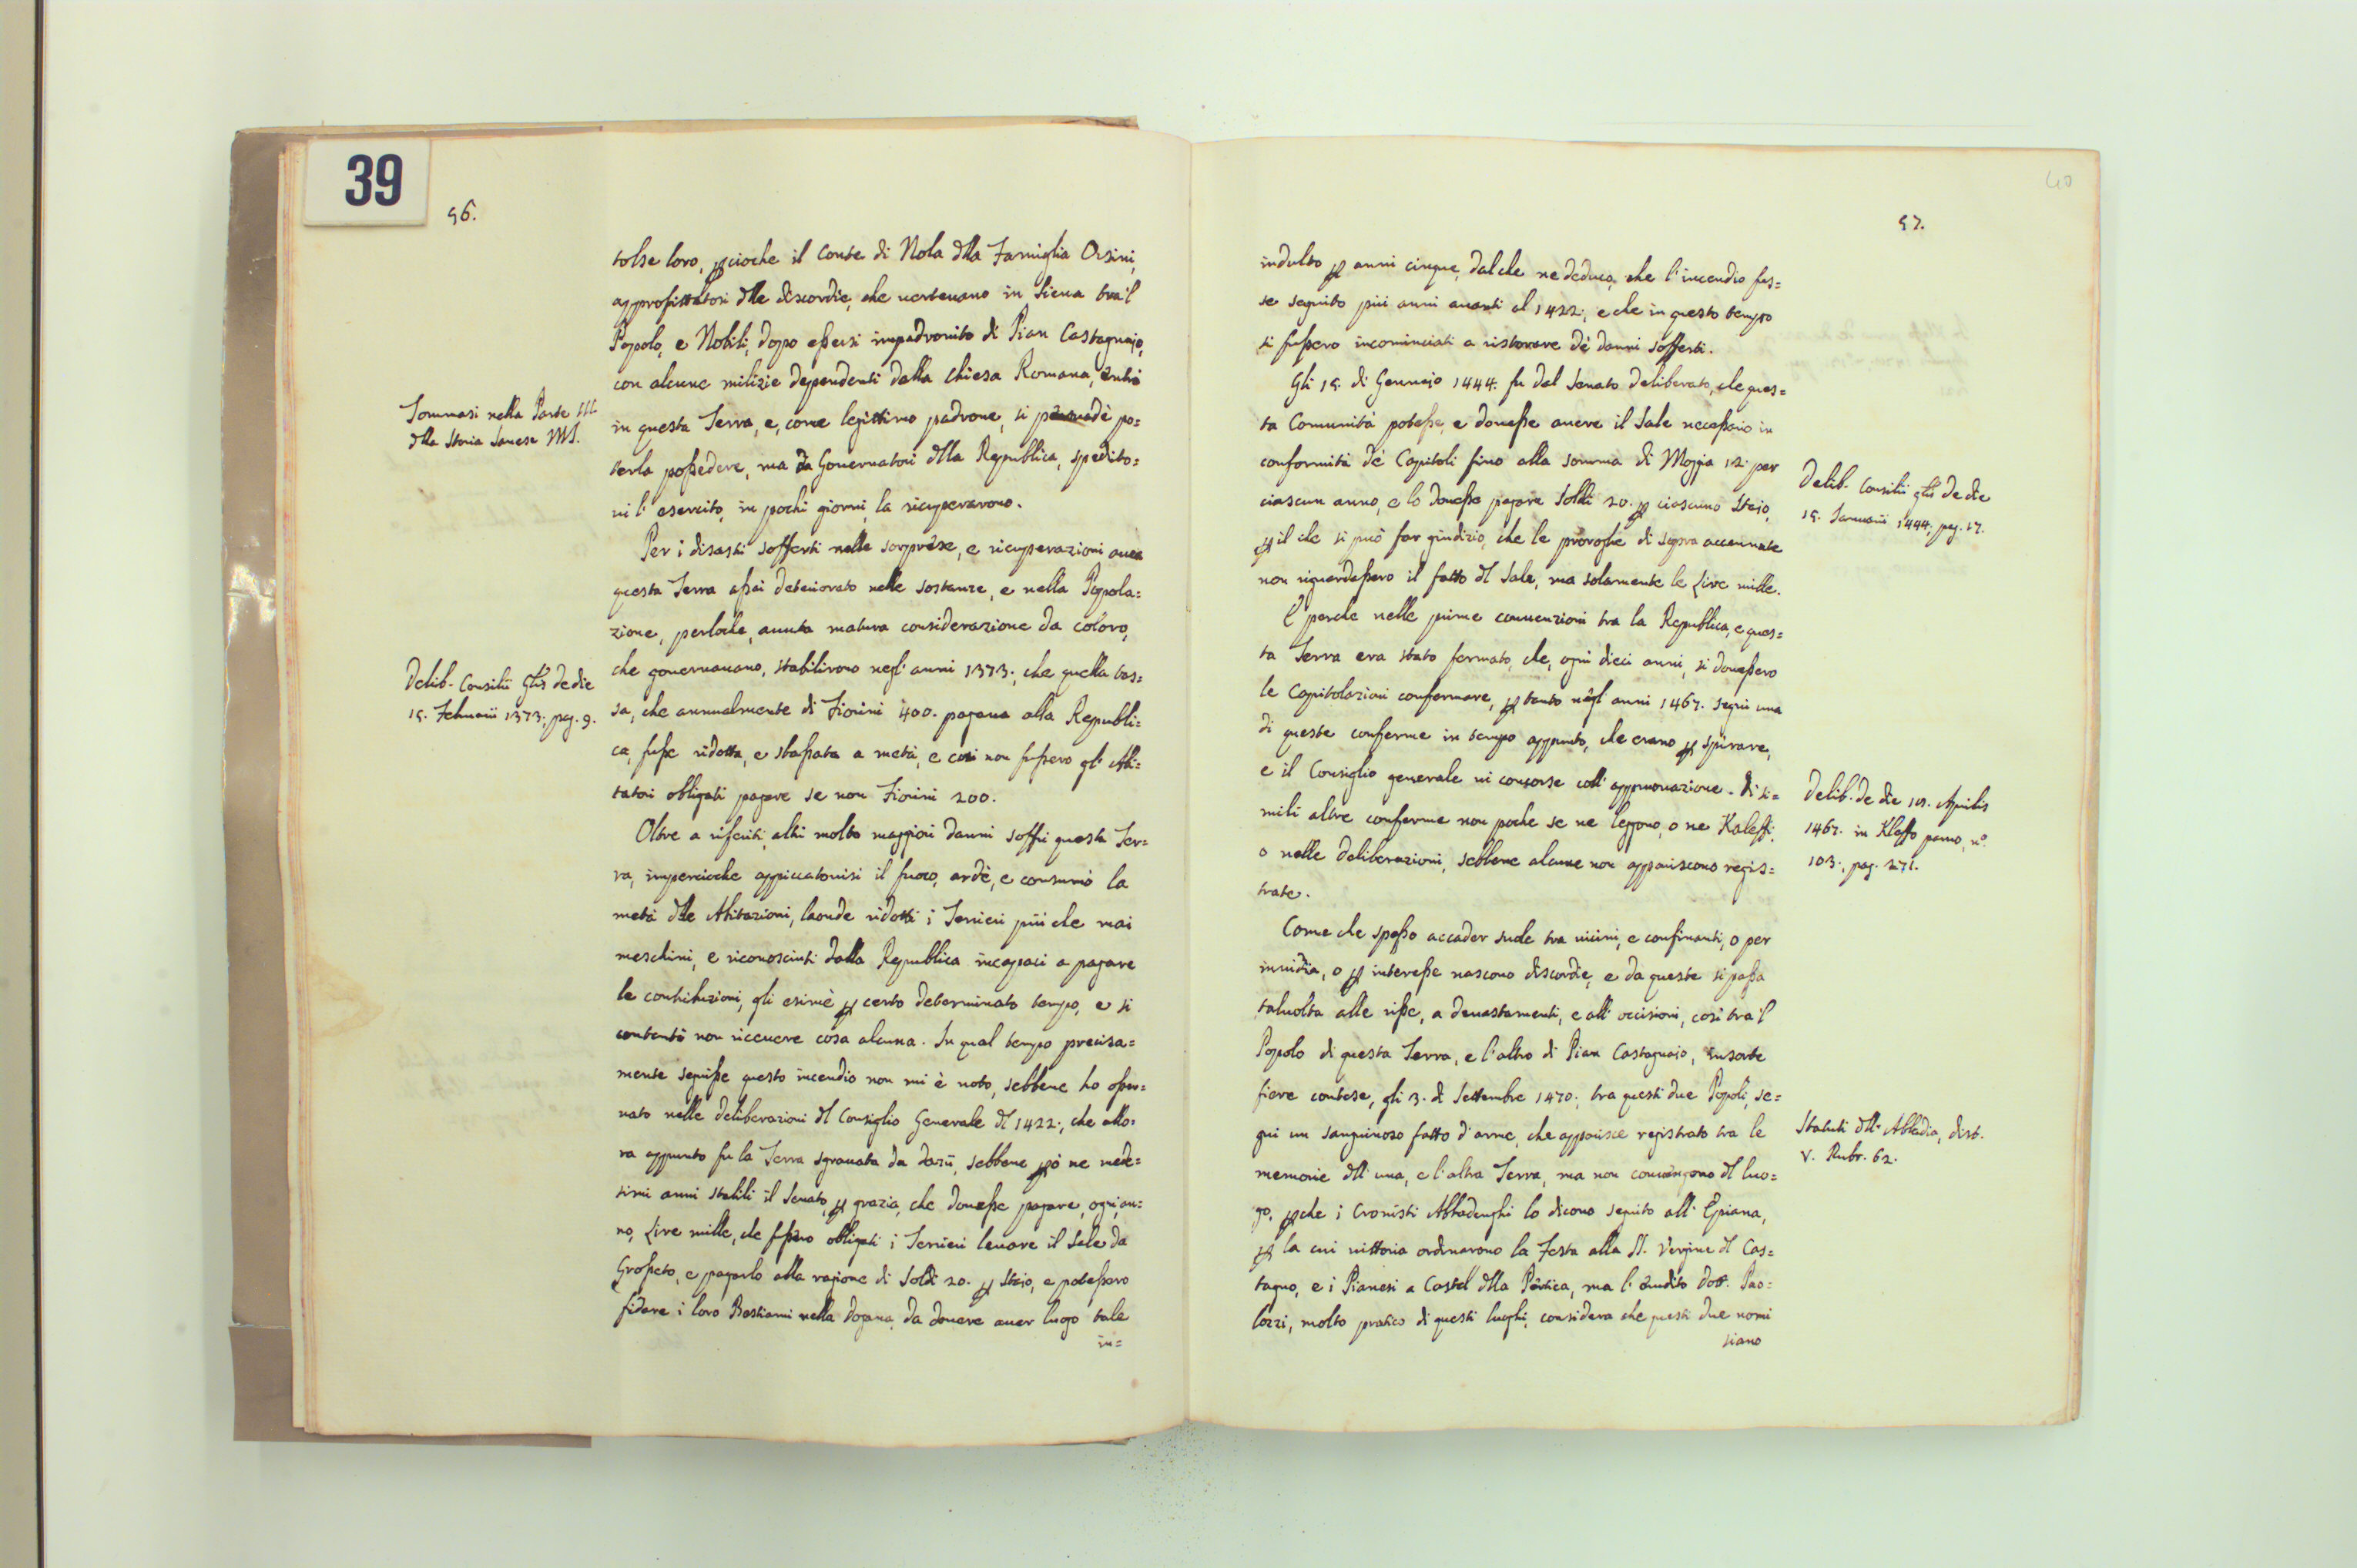 39
56.
tolse loro, p̱cioche il Conte di Nola dlla Famiglia Orsini,
approfittatosi dlle discordie, che uerteuano in Siena tra'l
Popolo, e Nobili, dopo eßersi impadronito di Pian Castagnaio,
con alcune milizie dependenti dalla Chiesa Romana, entrò
in questa Terra, e, come legittimo padrone, si persuadè po=
terla poßedere, ma da Gouernatori dlla Republica, spedito=
ui l' esercito, in pochi giorni, la ricuperarono.
Per i disasti sofferti nelle sorprese, e ricuperazioni auea
questa Terra aßai deteriorato nelle sostanze, e nella Popola=
zione, perloche, auuta matura considerazione da coloro,
che gouernauano, stabilirono negl' anni 1373., che quella tas=
sa, che annualmente di Fiorini 400. pagaua alla Republi=
ca, fuße ridotta, e sbaßata a metà, e così non fußero gl' Abi=
tatori obligati pagare se non Fiorini 200.
Oltre a riferiti, altri molto maggiori danni soffrì questa Ter=
ra, impercioche appiccatouisi il fuoco, ardè, e consumò la
metà dlle Abitazioni, laonde ridotti i Terrieri più che mai
meschini, e riconosciuti dalla Republica incapaci a pagare
le contribuzioni, gli esimè p̱ certo determinato tempo, e si
contentò non riceuere cosa alcuna. In qual tempo precisa=
mente seguiße questo incendio non mi è noto, sebbene ho oßer=
uato nelle deliberazioni dl Consiglio Generale dl 1422., che allo=
ra appunto fu la Terra sgrauata da dazii, sebbene p̱ò ne mede=
simi anni stabilì il Senato, p̱ grazia, che doueße pagare, ogni an=
no, Lire mille, che fßero obligati i Terrieri leuare il Sale da
Großeto, e pagarlo alla ragione di Soldi 20. p̱ Staio, e poteßero
fidare i loro Bestiami nella dogana, da douere auer luogo tale
in=
Tommasi nella Parte III.
dlla Storia Sanese MS.
Delib. Consilii Gñlis de die
15. Februarii 1373., pag. 9.
40
57.
indulto p̱ anni cinque, dal che ne deduco, che l'incendio fus=
se seguito più anni auanti al 1422., e che in questo tempo
si fußero incominciati a ristorare de' danni sofferti.
Gli 15. di Gennaio 1444. fu dal Senato deliberato, che ques=
ta Comunità poteße, e doueße auere il Sale neceßario in
conformità de' Capitoli fino alla somma di Moggia 12. per
ciascun anno, e lo doueße pagare Soldi 20. p̱ ciascuno Staio,
p̱ il che si può far giudizio, che le proroghe di sopra accennate
non riguardaßero il fatto dl Sale, ma solamente le Lire mille.
E perche nelle prime conuenzioni tra la Republica, e ques=
ta Terra era stato fermato, che, ogni dieci anni, si doueßero
le Capitolazioni confermare, p̱ tanto negl' anni 1467. seguì una
di queste conferme in tempo appunto, che erano p̱ spirare,
e il Consiglio generale ui concorse coll' approuazione. Di si=
mili altre conferme non poche se ne leggono, o ne Kaleffi,
o nelle deliberazioni, sebbene alcune non appariscono regis=
trate.
Come che speßo accader suole tra uicini, e confinanti, o per
inuidia, o p̱ intereße nascono discordie, e da queste si paßa
taluolta alle riße, a deuastamenti, e all' occisioni, così tra'l
Popolo di questa Terra, e l'altro di Pian Castagnaio, insorte
fiere contese, gli 3. di Settembre 1470., tra questi due Popoli, se=
guì un sanguinoso fatto d'arme, che apparisce registrato tra le
memorie dll' una, e l'altra Terra, ma non conuengono dl luo=
go, p̱che i Cronisti Abbadenghi lo dicono seguito all' Epiana,
p̱ la cui uittoria ordinarono la Festa alla SS. Vergine dl Cas=
tagno, e i Pianesi a Castel dlla Pertica, ma l' erudito dott. Pao=
lozzi, molto pratico di questi luoghi, considera che questi due nomi
siano
Delib. Consilii gñlis de die
15. Januarii 1444., pag. 17.
Delib. de die 10. Aprilis
1467. in Kleffo paruo, n.o
103., pag. 271.
Statuti dll' Abbadia, dist.
V. Rubr. 62.